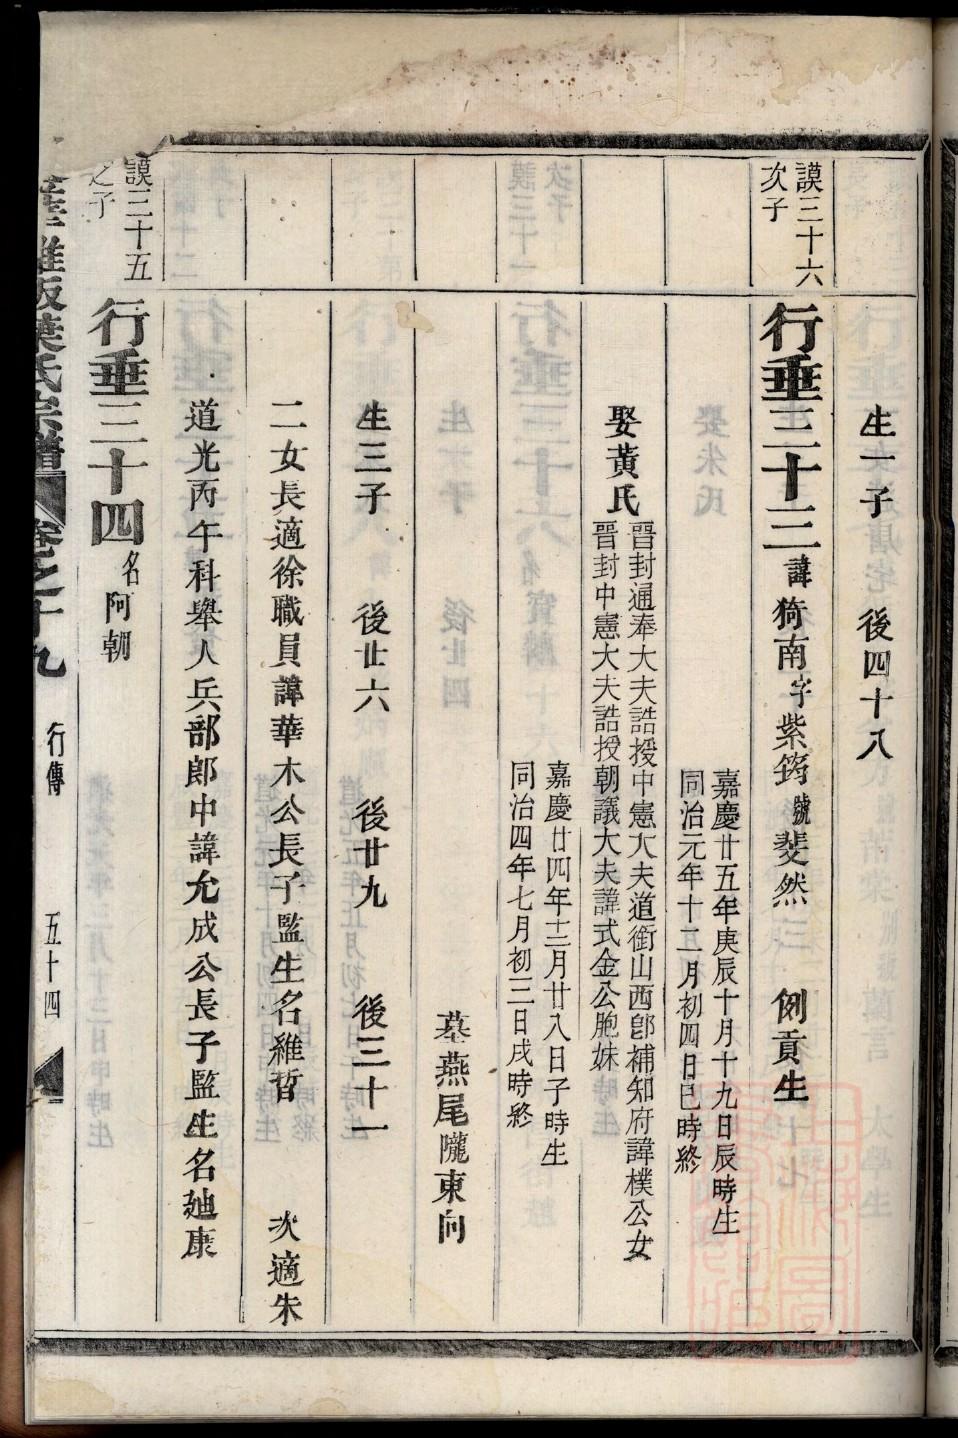 生一子　後四十八
謨三十六
次子
行垂三十三 諱猗南 字紫筠 號斐然　例貢生
嘉慶廿五年庚辰十月十九日辰時生
同治元年十二月初四日巳時終
娶黃氏
晉封通奉大夫誥授中憲大夫道銜山西卽補知府諱樸公女
晉封中憲大夫誥授朝議大夫諱式金公胞妹
嘉慶廿四年十二月廿八日子時生
同治四年七月初三日戌時終
墓燕尾隴東向
生三子　後廿六　後廿九　後三十一
二女長適徐職員諱華木公長子監生名維哲　次適朱
道光丙午科舉人兵部郎中諱允成公長子監生名廸康
謨三十五
之子
行垂三十四 名阿朝
葉氏宗譜 卷之十九　行傳　五十四